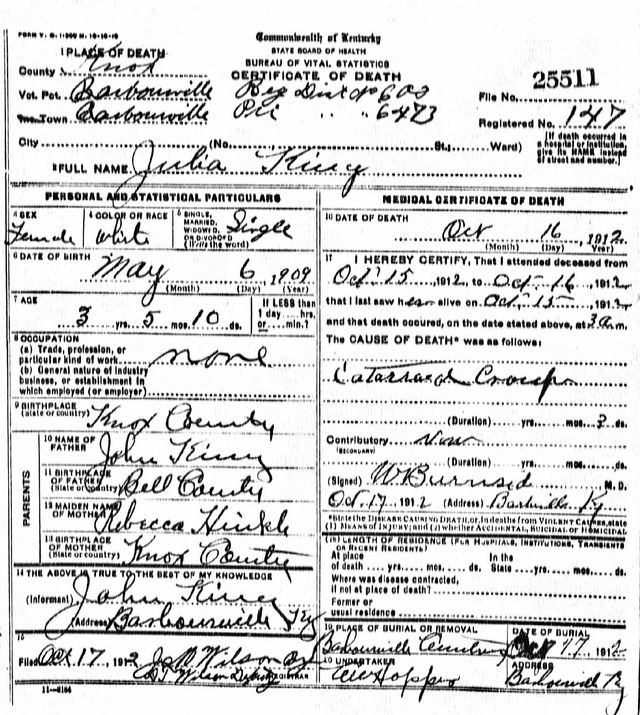 FORM V. S. 1-
Commonwealth of Kentucky
STATE BOARD OF HEALTH
BUREAU OF VITAL STATISTICS
CERTIFICATE OF DEATH
1 PLACE OF DEATH
County Knox
Vot. Pct. Barbourville Reg Dist No 602
Inc. Town Barbourville Pri " " 6473
25511
File No.
Registered No. 147
City (No. St.; Ward)
[If death occurred in a hospital or institution, give its NAME instead of street and number.]
2 FULL NAME Julia King
PERSONAL AND STATISTICAL PARTICULARS
3 SEX Female
4 COLOR OR RACE White
5 SINGLE, MARRIED, WIDOWED, OR DIVORCED (Write the word) Single
6 DATE OF BIRTH
May 6 1909
(Month) (Day) (Year)
7 AGE
3 yrs. 5 mos. 10 ds.
If LESS than 1 day....hrs. or....min.?
8 OCCUPATION
(a) Trade, profession, or particular kind of work none
(b) General nature of industry business, or establishment in which employed (or employer)
9 BIRTHPLACE
(State or country) Knox County
PARENTS
10 NAME OF FATHER John King
11 BIRTHPLACE OF FATHER (State or country) Bell County
12 MAIDEN NAME OF MOTHER Rebecca Hinkle
13 BIRTHPLACE OF MOTHER (State or country) Knox County
14 THE ABOVE IS TRUE TO THE BEST OF MY KNOWLEDGE
(Informant) John King
(Address) Barbourville Ky
15
Filed Oct 17, 1912 J W Wilson
Wilson REGISTRAR
11-3184
MEDICAL CERTIFICATE OF DEATH
16 DATE OF DEATH
Oct 16, 1912
(Month) (Day) (Year)
17 I HEREBY CERTIFY, That I attended deceased from
Oct. 15 1912, to Oct. 16, 1912
that I last saw her alive on Oct. 15, 1912
and that death occured, on the date stated above, at 3 a m.
The CAUSE OF DEATH* was as follows:
Croup
(Duration) yrs. mos. 3 ds.
Contributory
(SECONDARY)
(Duration) yrs. mos. ds.
(Signed) W Burnsid M. D.
Oct. 17, 1912 (Address) Barbville Ky
*State the DISEASE CAUSING DEATH, or, in deaths from VIOLENT CAUSES, state (1) MEANS OF INJURY; and (2) whether ACCIDENTAL, SUICIDAL or HOMICIDAL
18 LENGTH OF RESIDENCE (FOR HOSPITALS, INSTITUTIONS, TRANSIENTS OR RECENT RESIDENTS)
At place of death yrs. mos. ds. In the State yrs. mos. ds.
Where was disease contracted, if not at place of death?
Former or usual residence
19 PLACE OF BURIAL OR REMOVAL DATE OF BURIAL
Barbourville Cemetery Oct 17, 1912
20 UNDERTAKER ADDRESS
Hopper Barbourville Ky